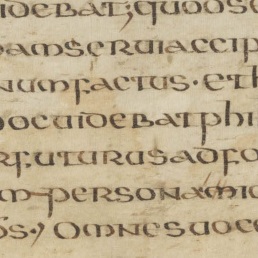 uidebat; quod se
amseruiaccip
numfactus · eth
hocuidebatphi
rfuturusadfo
m-personamio
ōs·, omnesuoce